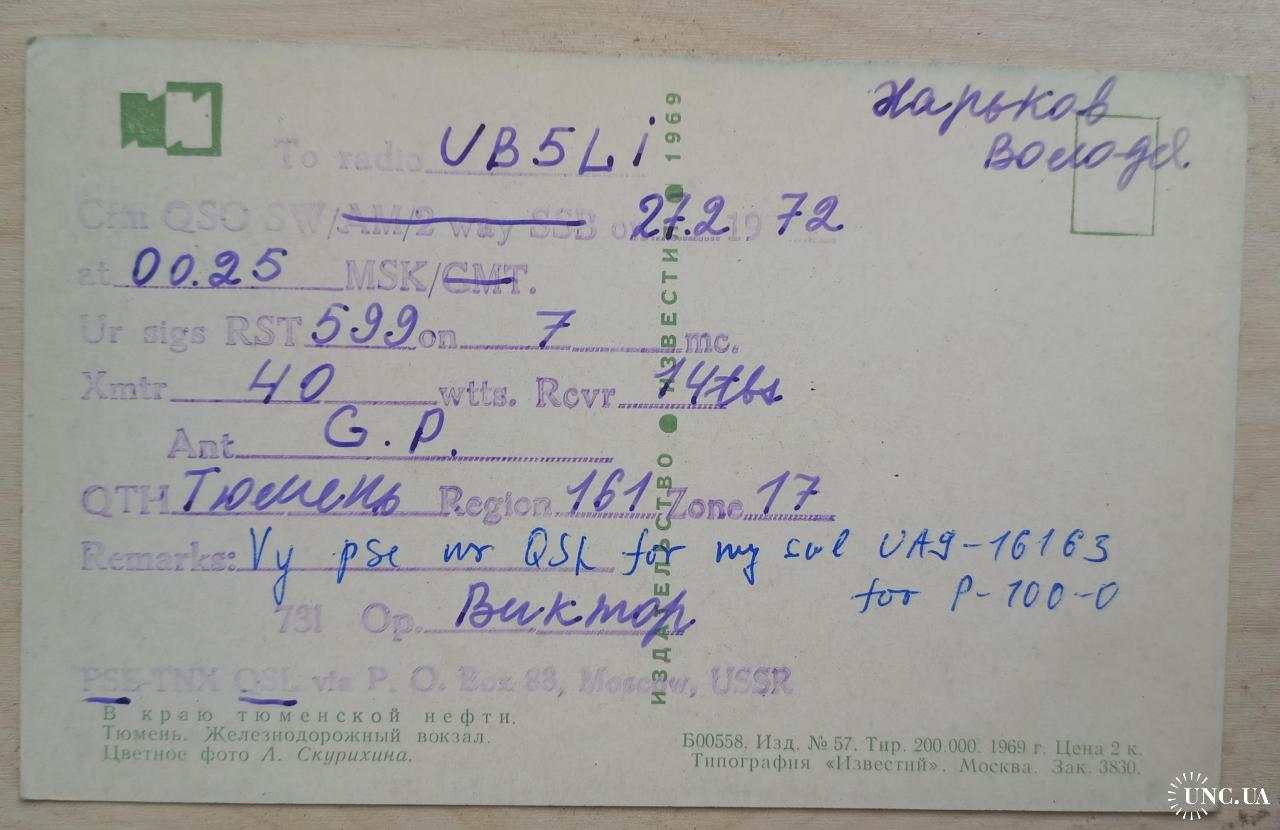 Харьков
Володя.
To radio UB5Li
Cfm QSO SW/AM/2 way SSB on 27.2 19 72
at 00.25 MSK/GMT.
Ur sigs RST 599 on 7 mc.
Xmtr 40 wtts. Rcvr 14tbs
Ant G.P.
QTH Тюмень Region 161 Zone 17
Remarks: Vy pse ur QSL for my swl UA9-16163
for P-100-O
731 Op. Виктор
PSE-TNX QSL via P. O. Box 88, Moscow, USSR
ИЗДАТЕЛЬСТВО ● ИЗВЕСТИЯ ● 1969
В краю тюменской нефти.
Тюмень. Железнодорожный вокзал.
Цветное фото А. Скурихина.
Б00558. Изд. № 57. Тир. 200.000. 1969 г. Цена 2 к.
Типография «Известий». Москва. Зак. 3830.
UNC.UA